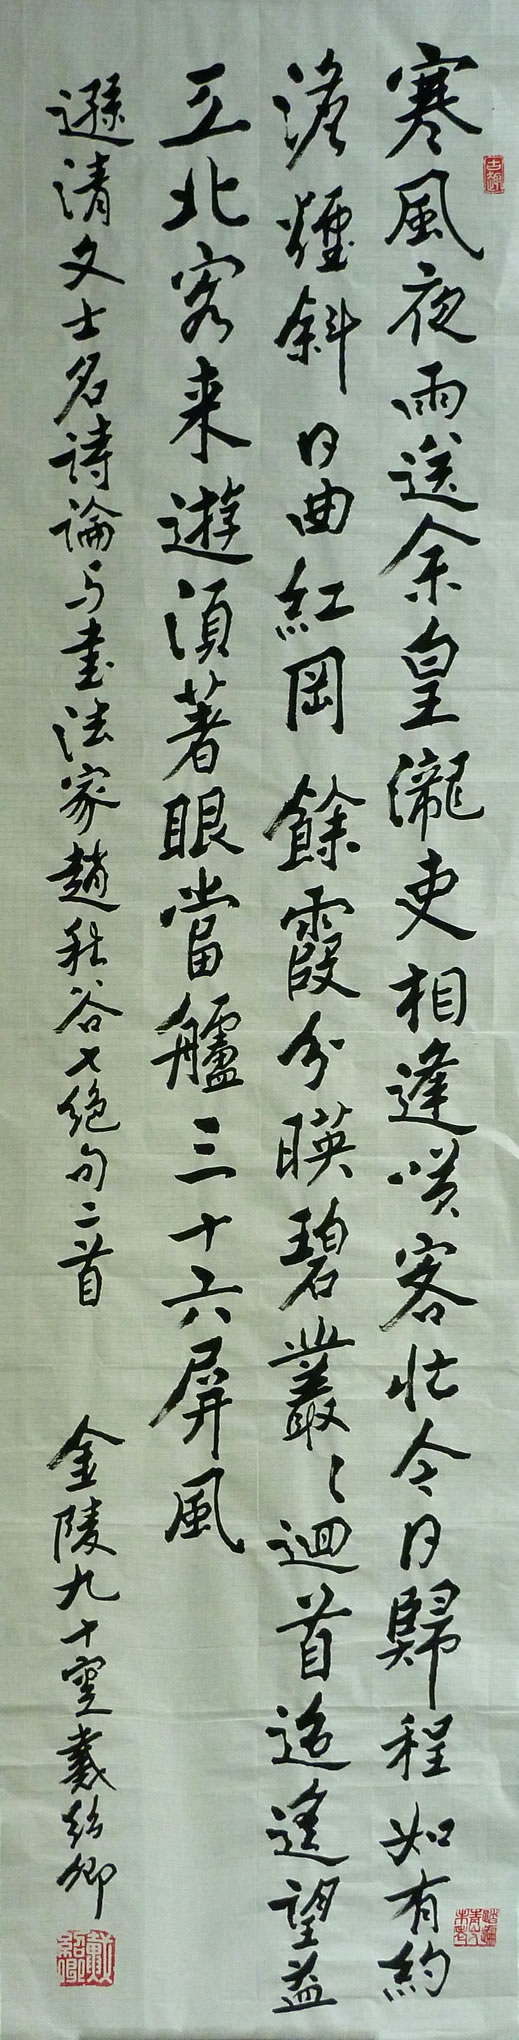 寒風夜雨送余皇瀧吏相逢嘆客忙今日歸程如有約
澹煙斜日曲紅岡 餘霞分暎碧叢〻迴首迢遙望益
工北客来遊須著眼當艫三十六屏風
遜清文士名詩論与書法家趙秋谷七絕句二首
金陵九十叟戴紹卿
戴紹卿